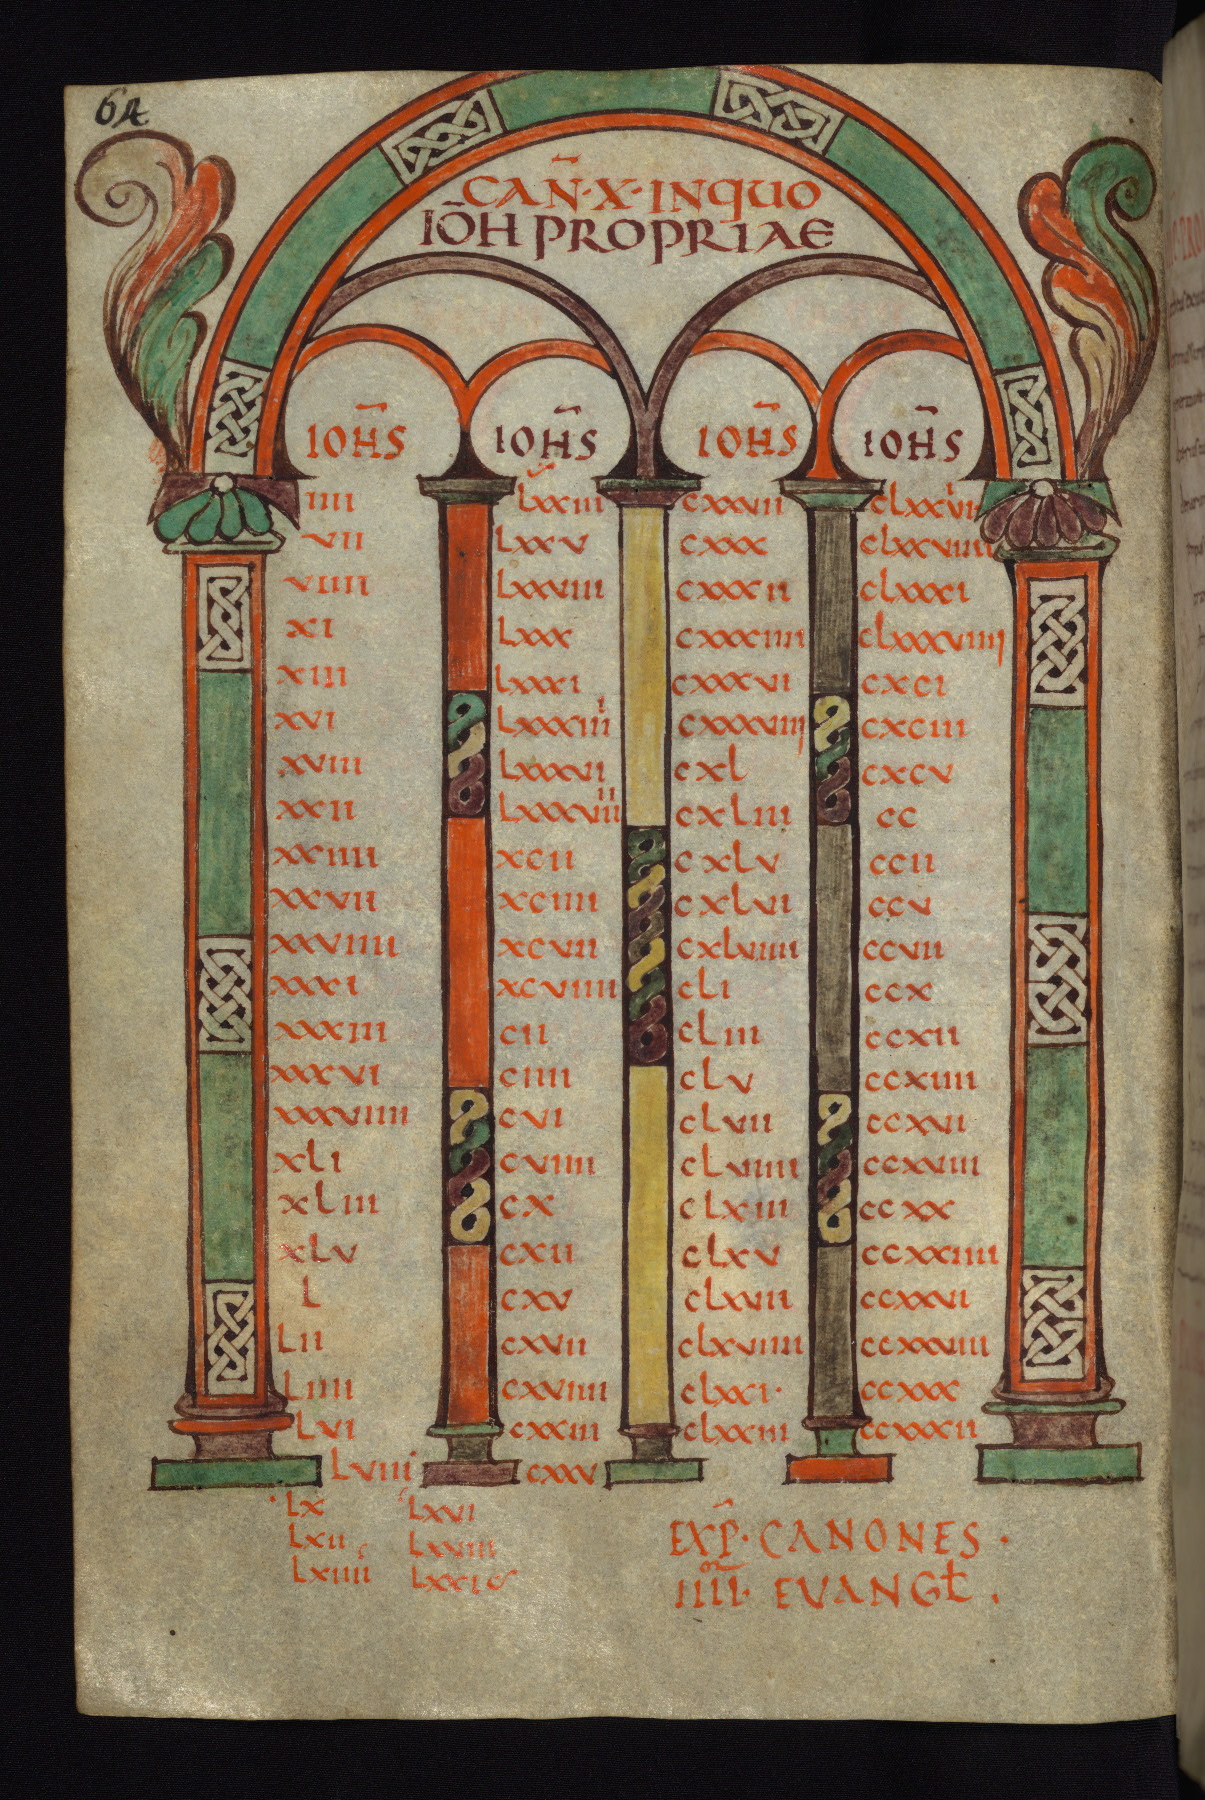 64
CAN̄·X·INQUO
IŌH PROPRIAE
IOH̄S IOH̄S IOH̄S IOH̄S
IIII LXXIII CXXVII CLXXVII
VII LXXV CXXX CLXXVIIII
VIIII LXXVIII CXXXII CLXXXI
XI LXXX CXXXIIII CLXXXVIIII
XIII LXXXI CXXXVI CXCI
XVI LXXXIII CXXXVIIII CXCIII
XVIII LXXXVI CXL CXCV
XXII LXXXVIII CXLIII CC
XXIIII XCII CXLV CCII
XXVII XCIIII CXLVI CCV
XXVIIII XCVII CXLVIIII CCVII
XXXI XCVIIII CLI CCX
XXXIII CII CLIII CCXII
XXXVI CIIII CLV CCXIIII
XXXVIIII CVI CLVII CCXVI
XLI CVIIII CLVIIII CCXVIIII
XLIII CX CLXIII CCXX
XLV CXII CLXV CCXXIIII
L CXV CLXVII CCXXVI
LII CXVII CLXVIIII CCXXVIIII
LIIII CXVIIII CLXXI· CCXXX
LVI CXXIII CLXXIII CCXXXII
LVIII CXXV
LX LXVI
LXII LXVIII
LXIIII LXXI
EXP̄·CANONES·
IIII· EVANGŁ.